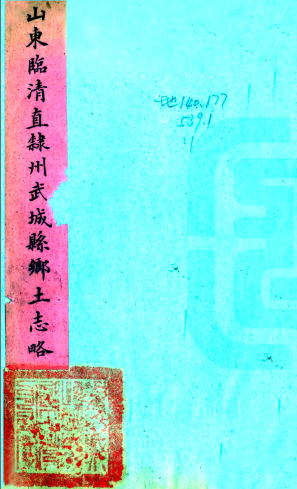 山東臨清直隸州武城縣鄉土志略
140.177
539.1